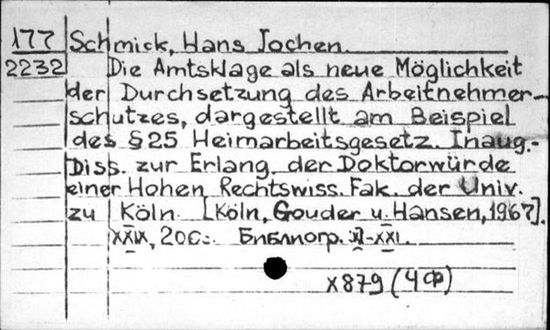 177 Schmick, Hans Jochen
2232 Die Amtsklage als neue Möglichkeit
der Durchsetzung des Arbeitnehmer-
schutzes, dargestellt am Beispiel
des § 25 Heimarbeitsgesetz. Inaug.-
Diss. zur Erlang. der Doktorwürde
einer Hohen Rechtswiss. Fak. der Univ.
zu Köln. [Köln, Gouder u. Hansen, 1967].
XXIX, 206 с. Библиогр. XI-XXI.
х879 (4Ф)